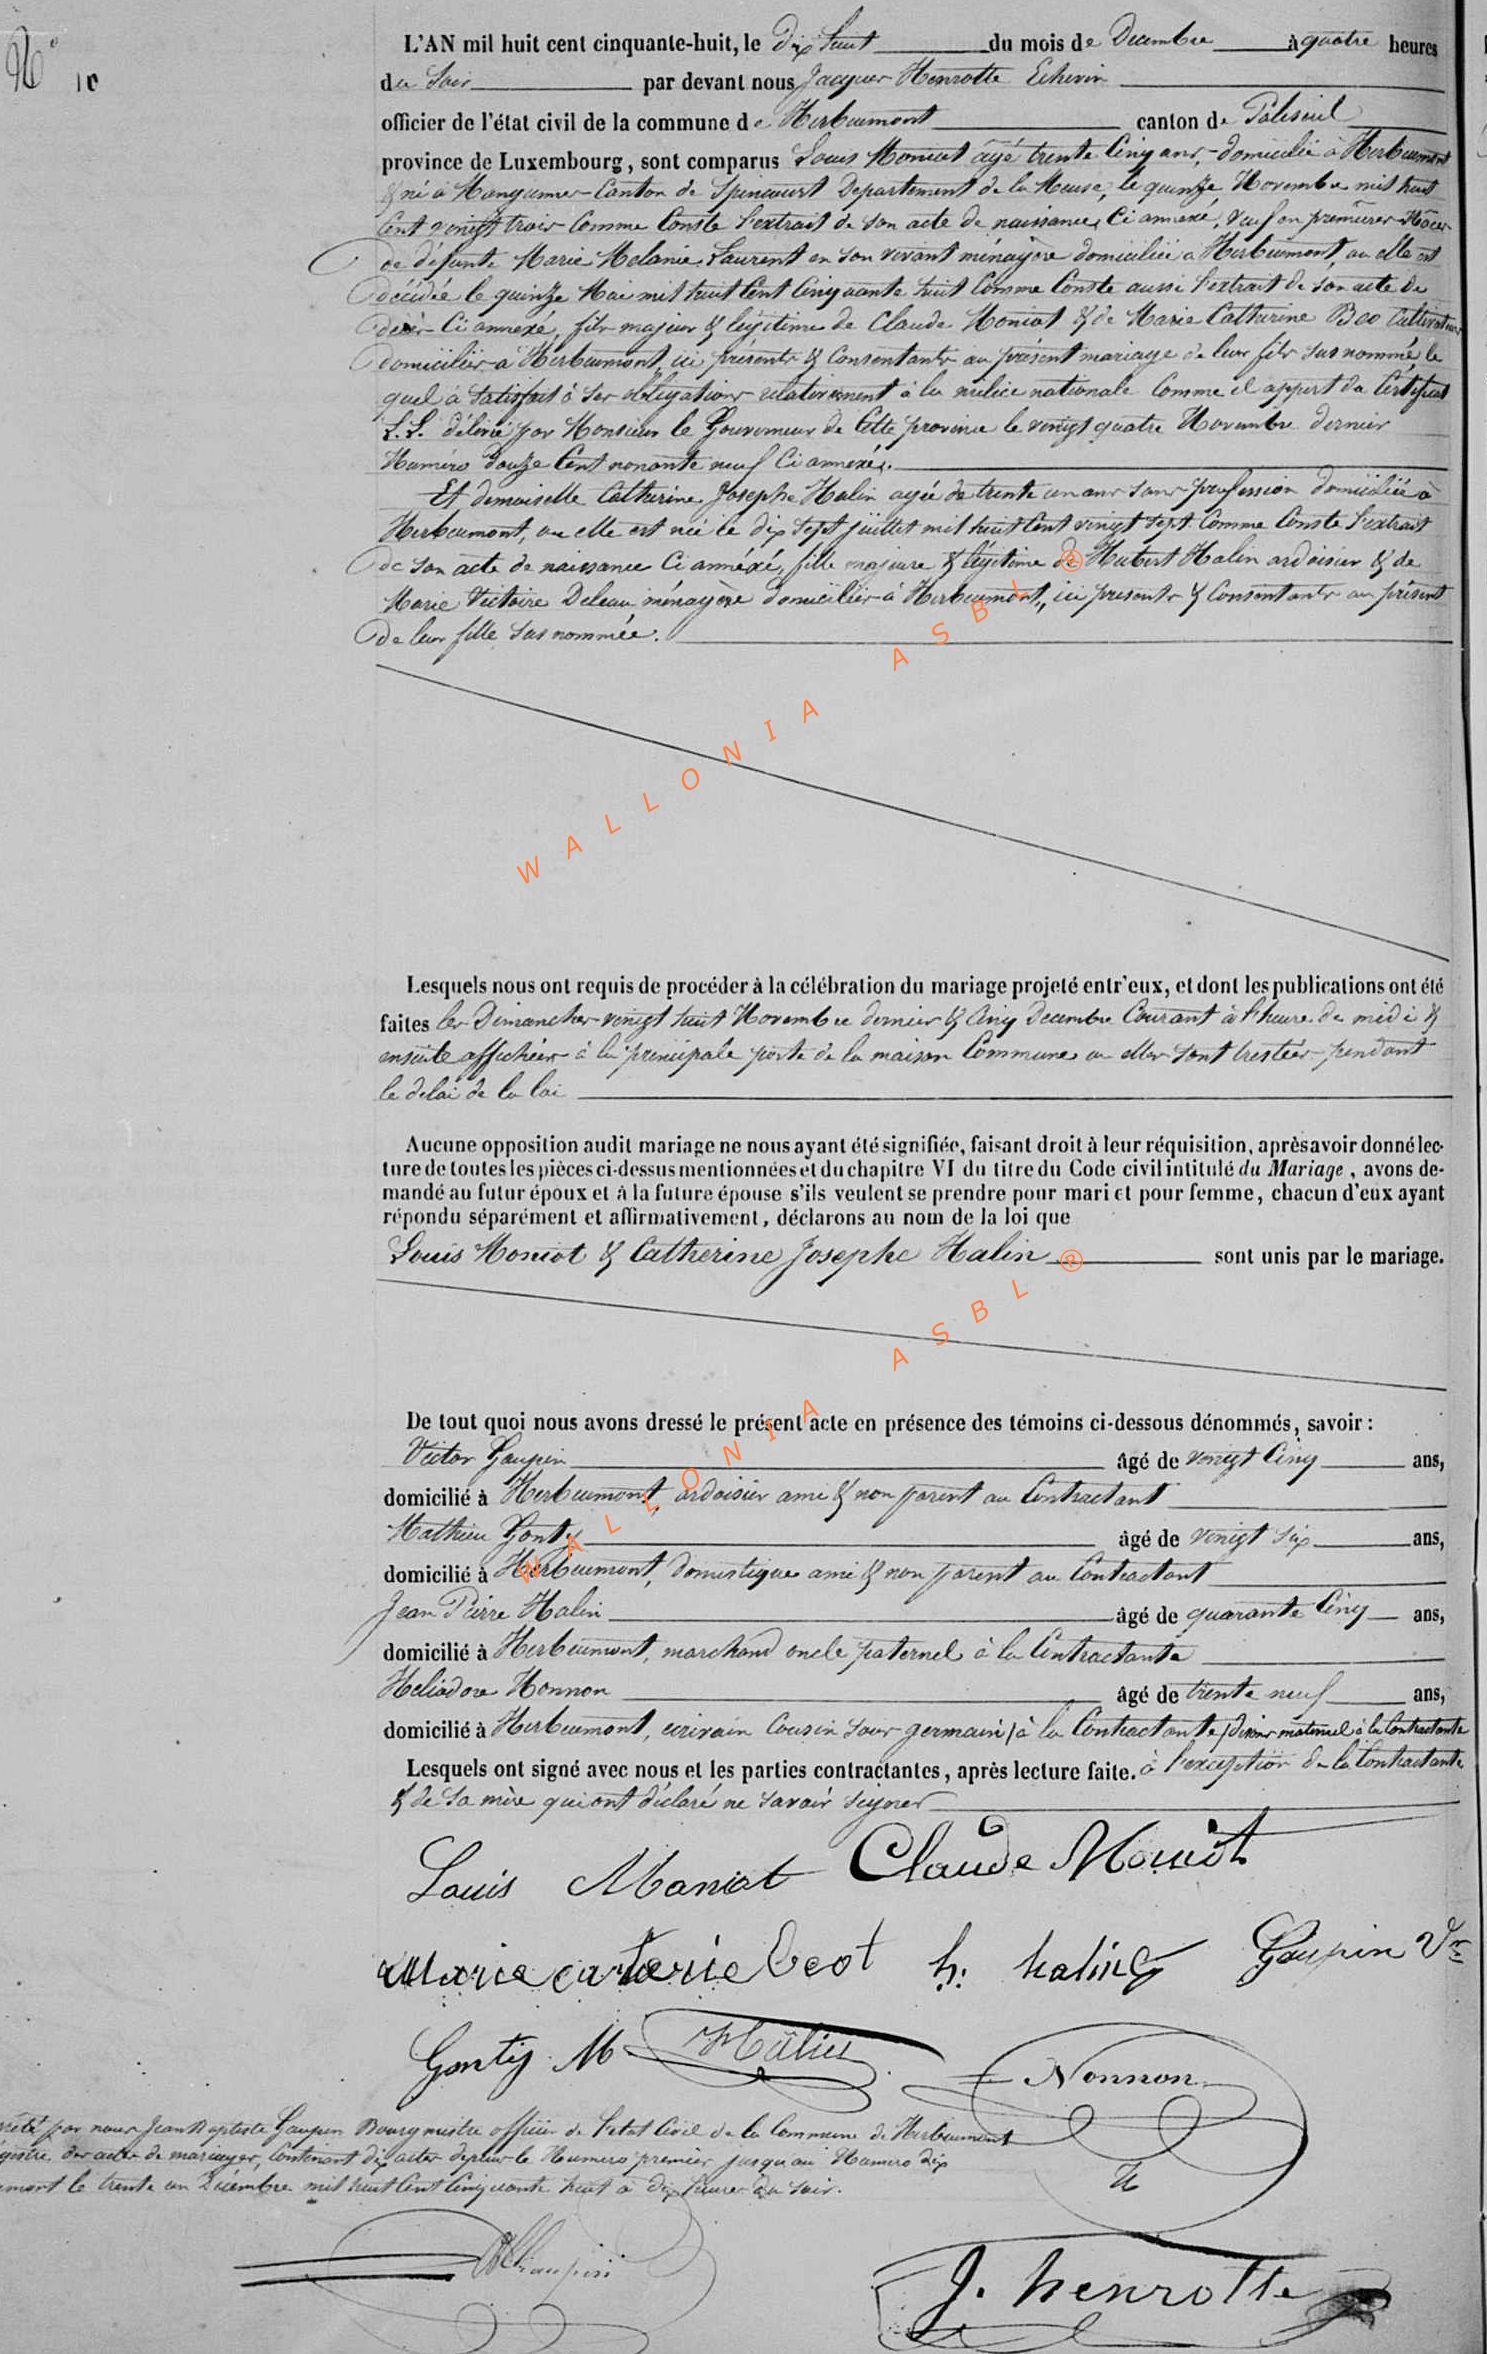 N° 10
L'AN mil huit cent cinquante-huit, le dix huit du mois de Decembre à quatre heures
du Soir par devant nous Jacques Henrotte Echevin
officier de l'état civil de la commune de Herbeumont canton de Paliseul
province de Luxembourg, sont comparus Louis Moniot âgé trente Cinq ans, domicilié à Herbeumont
& né à Mangiennes Canton de Spincourt Departement de la Meuse, le quinze Novembre mil huit
Cent vingt trois Comme Conste l'extrait de son acte de naissance Ci annexé, veuf en premières Nôces
de défunte Marie Melanie Laurent en son vivant ménagère domiciliée à Herbeumont, ou elle est
décédée le quinze Mai mil huit Cent Cinquante huit Comme Conste aussi l'extrait de son acte de
décès Ci annexé, fils majeur & légitime de Claude Moniot & de Marie Catherine Beo Cultivateurs
domiciliés à Herbeumont, ici présents & Consentants au présent mariage de leur fils sus nommé, le
quel à Satisfait à ses obligations relativement à la milice nationale Comme il appert du Certificat
L.L. délivré par Monsieur le Gouverneur de Cette province le vingt quatre Novembre dernier
Numéro douze Cent nonante neuf Ci annexés.
Et demoiselle Catherine Josephe Halin agée de trente un ans sans profession domiciliée à
Herbeumont, ou elle est née le dix sept juillet mil huit Cent vingt sept Comme Conste l'extrait
de son acte de naissance Ci annéxé, fille majeure & légitime de Hubert Halin ardoisier & de
Marie Victoire Deleau ménagère domiciliés à Herbeumont, ici presents & Consentants au présent
de leur fille sus nommée.
WALLONIA ASBL ®
Lesquels nous ont requis de procéder à la célébration du mariage projeté entr'eux, et dont les publications ont été
faites les Dimanches vingt huit Novembre dernier & Cinq Decembre Courant à l'heure de midi &
ensuite affichées à la principale porte de la maison Commune ou elles sont restées pendant
le delai de la loi
Aucune opposition audit mariage ne nous ayant été signifiée, faisant droit à leur réquisition, après avoir donné lec-
ture de toutes les pièces ci-dessus mentionnées et du chapitre VI du titre du Code civil intitulé du Mariage, avons de-
mandé au futur époux et à la future épouse s'ils veulent se prendre pour mari et pour femme, chacun d'eux ayant
répondu séparément et affirmativement, déclarons au nom de la loi que
Louis Moniot & Catherine Josephe Halin sont unis par le mariage.
WALLONIA ASBL ®
De tout quoi nous avons dressé le présent acte en présence des témoins ci-dessous dénommés, savoir :
Victor Gaupin âgé de vingt Cinq ans,
domicilié à Herbeumont, ardoisier ami & non parent au Contractant
Mathieu Gonty âgé de vingt six ans,
domicilié à Herbeumont, domestique ami & non parent au Contractant
Jean Pierre Halin âgé de quarante Cinq ans,
domicilié à Herbeumont, marchand oncle paternel à la Contractante
Heliodore Nonnon âgé de trente neuf ans,
domicilié à Herbeumont, écrivain Cousin sous germain à la Contractante maternel à la Contractante
Lesquels ont signé avec nous et les parties contractantes, après lecture faite. à l'exception de la Contractante
& de sa mère qui ont déclaré ne savoir signer
Louis Moniot Claude Moniot
Marie caterie beot h: halin Gaupin Vr
Gontiy M Halin Nonnon
par nous Jean Baptiste Gaupin Bourgmestre officier de l'etat Civil de la Commune de Herbeumont
des actes de mariages, Contenant dix actes depuis le Numero premier jusqu'au Numero dix
le trente un Décembre mil huit Cent Cinquante huit à dix heures du soir.
H
Gaupin
J. henrotte